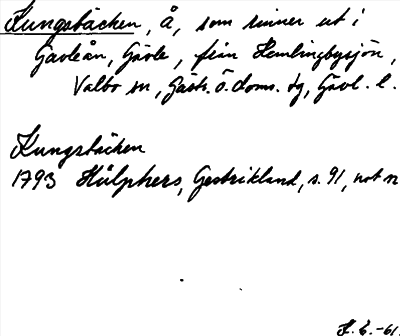 Kungsbäcken, Å, som rinner ut i
Gavleån, Gävle, från Hemlingbysjön,
Valbo sn, Gästr. Ö. doms. dg, Gävl. l.
Kungsbäcken
1793 Hülphers, Gestrikland, s. 91, not n
K. E. -61.